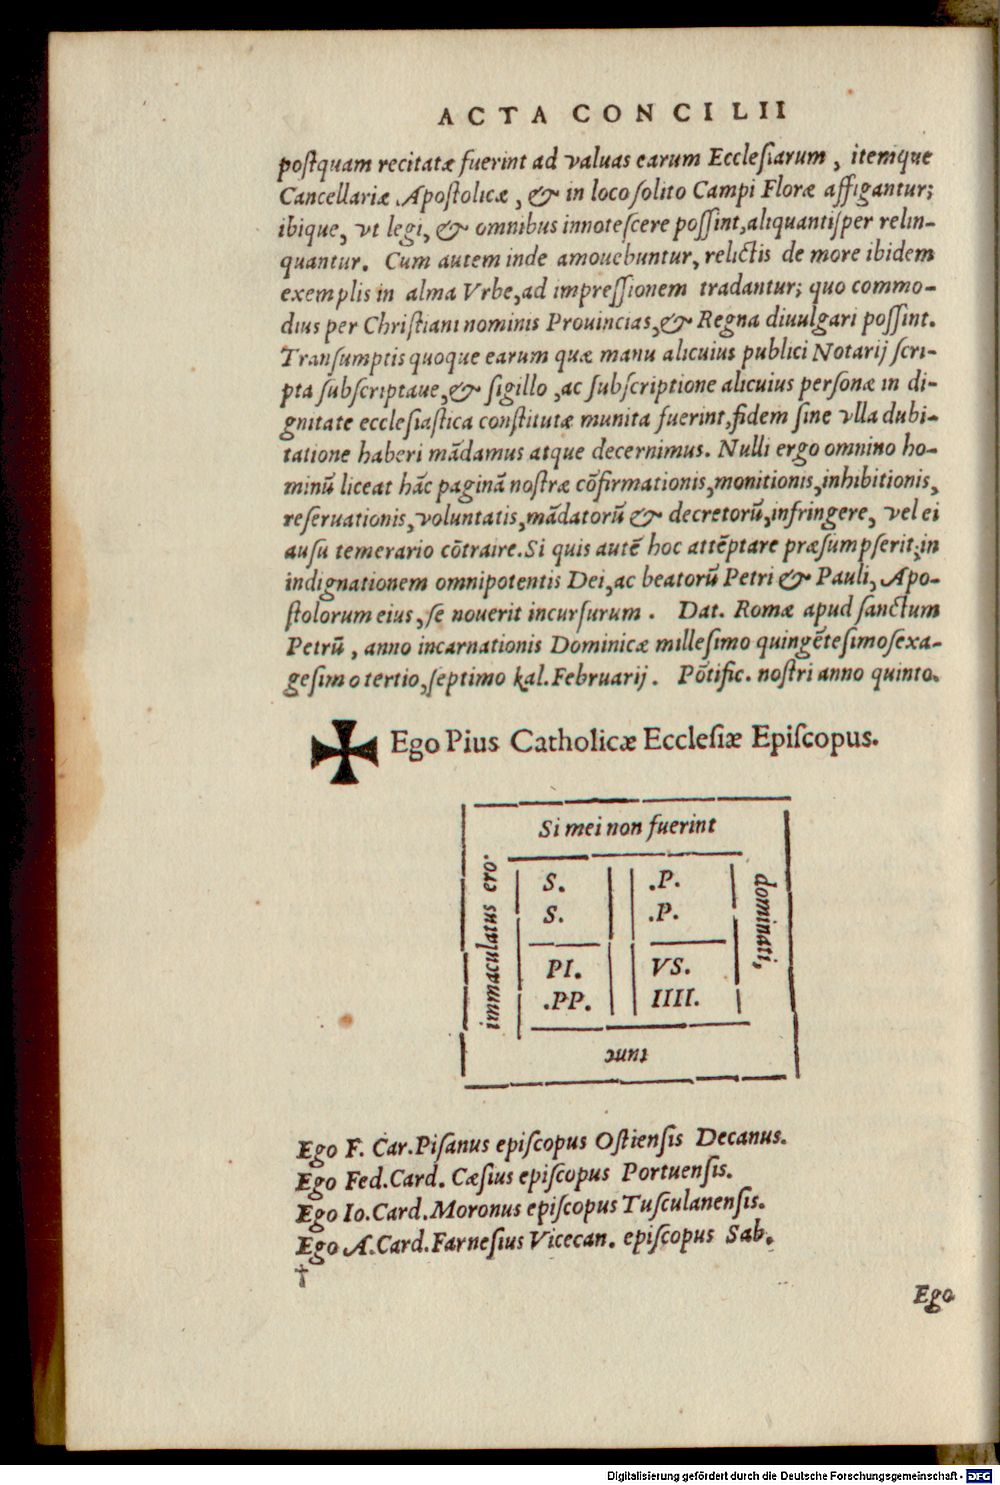 ACTA CONCILII
poſtquam recitatæ fuerint ad valuas earum Eccleſiarum, itemque
Cancellariæ Apoſtolicæ, & in loco ſolito Campi Floræ affigantur;
ibique, vt legi, & omnibus innoteſcere poſſint, aliquantiſper relin-
quantur. Cum autem inde amouebuntur, relictis de more ibidem
exemplis in alma Vrbe, ad impreſſionem tradantur; quo commo-
dius per Chriſtiani nominis Prouincias, & Regna diuulgari poſſint.
Tranſumptis quoque earum quæ manu alicuius publici Notarij ſcri-
pta ſubſcriptaue, & ſigillo, ac ſubſcriptione alicuius perſonæ in di-
gnitate eccleſiaſtica conſtitutæ munita fuerint, fidem ſine vlla dubi-
tatione haberi mādamus atque decernimus. Nulli ergo omnino ho-
minū liceat hāc paginā noſtræ cōfirmationis, monitionis, inhibitionis,
reſeruationis, voluntatis, mādatorū & decretorū, infringere, vel ei
auſu temerario cōtraire. Si quis autē hoc attēptare præſumpſerit; in
indignationem omnipotentis Dei, ac beatorū Petri & Pauli, Apo-
ſtolorum eius, ſe nouerit incurſurum. Dat. Romæ apud ſanctum
Petrū, anno incarnationis Dominicæ milleſimo quingēteſimoſexa-
geſimo tertio, ſeptimo kal. Februarij. Pōtific. noſtri anno quinto.
Ego Pius Catholicæ Eccleſiæ Epiſcopus.
Si mei non fuerint
dominati,
tunc
immaculatus ero.
S. .P.
S. .P.
PI. VS.
.PP. IIII.
Ego F. Car. Piſanus epiſcopus Oſtienſis Decanus.
Ego Fed. Card. Cæſius epiſcopus Portuenſis.
Ego Io. Card. Moronus epiſcopus Tuſculanenſis.
Ego A. Card. Farneſius Vicecan. epiſcopus Sab.
†
Ego
Digitalisierung gefördert durch die Deutsche Forschungsgemeinschaft - DFG